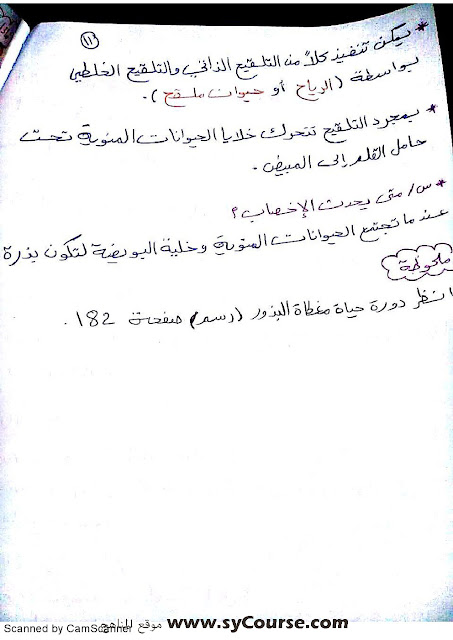 ١١
* يمكن تنفيذ كلاً من التلقيح الذاتي والتلقيح الخلطي
بواسطة (الرياح أو حيوان ملقح).
* بمجرد التلقيح تتحرك خلايا الحيوانات المنوية تحت
حامل القلم إلى المبيض.
* س/ متى يحدث الإخصاب؟
عندما تجتمع الحيوانات المنوية وخلية البويضة لتكون بذرة
ملحوظة
انظر دورة حياة مغطاة البذور (رسم) صفحة 182.
Scanned by CamScanner موقع المناهج www.syCourse.com